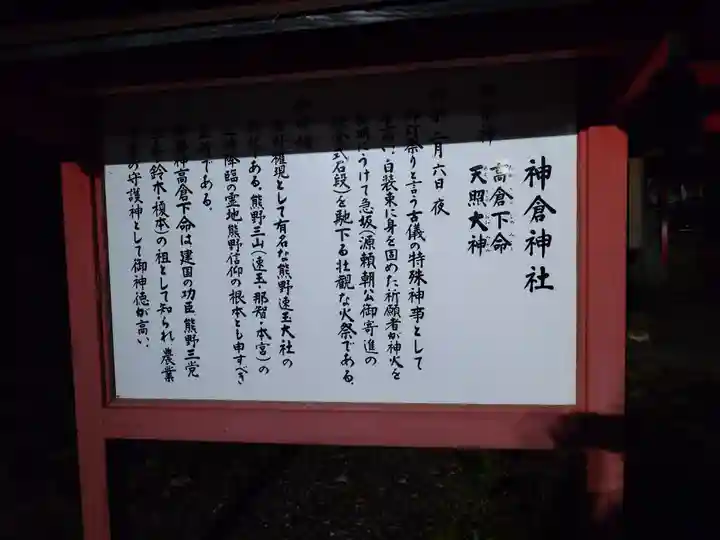 神倉神社
高倉下命
天照大神
二月六日夜
祭りと言う古儀の特殊神事として
白装束に身を固めた祈願者が神火を
にうけて急坂(源頼朝公御寄進の
式石段)を馳下る壮観な火祭である。
権現として有名な熊野速玉大社の
である。熊野三山(速玉・那智・本宮)の
降臨の霊地熊野信仰の根本とも申すべき
である。
神高倉下命は建国の功臣熊野三党
鈴木・榎本)の祖として知られ農業
の守護神として御神徳が高い。